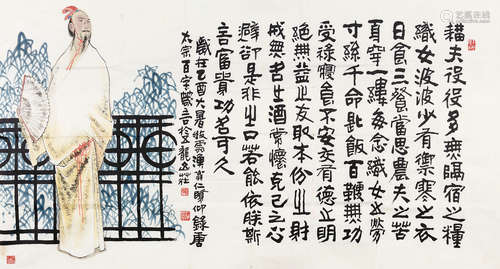 耕夫役役多無隔宿之糧
織女波波少有禦寒之衣
日食三餐當思農夫之苦
身穿一縷每念織女之勞
寸絲千命匙飯百鞭無功
受祿寢食不安交有德之朋
絕無益之友取本份之財
戒無名之酒常懷克己之心
閉却是非之口若能依朕斯
言富貴功名可久
歲在乙酉大暑 仰錄唐
太宗百字箴言 龍山莊